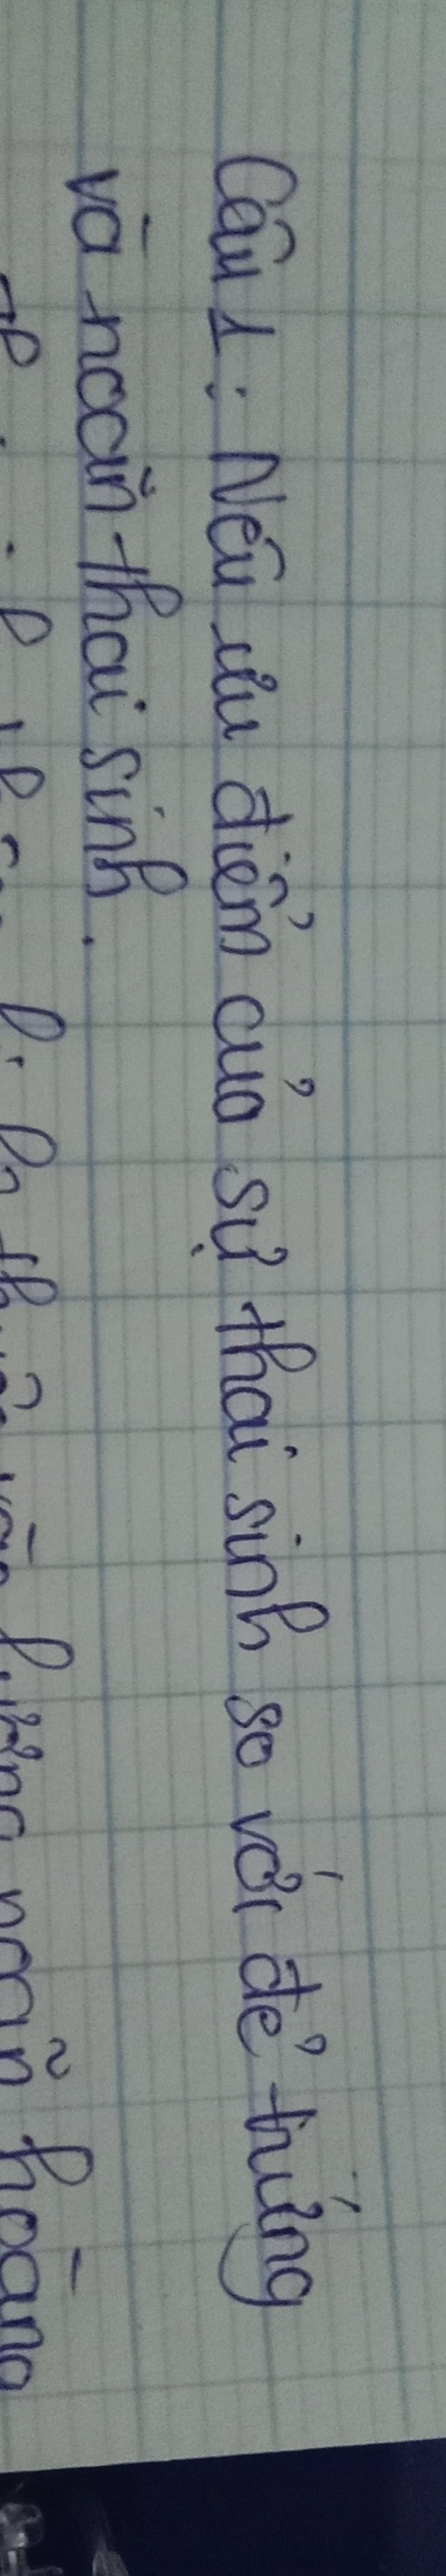 Câu 1: Nêu ưu điểm của sự thai sinh so với đẻ trứng
và noãn thai sinh.
hoàng